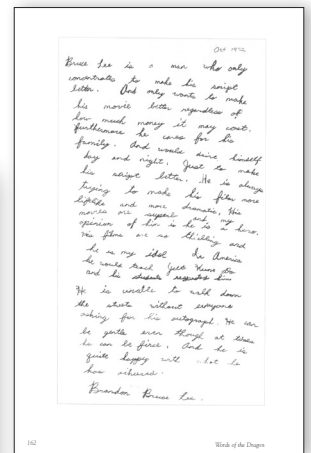 Oct 1972
Bruce Lee is a man who only
concentrates to make his script
better. And only wants to make
his movie better regardless of
how much money it may cost.
furthermore he cares for his
family. And would drive himself
day and night, just to make
his script better. He is always
trying to make his film more
lifelike and more dramatic. His
movies are superb and my
opinion of him is he is a hero,
his films are so thrilling and
he is my idol. In America
he would teach Jeet Kune Do
and his students respected him
He is unable to walk down
the streets without everyone
asking for his autograph. He can
be gentle even though at times
he can be firce. And he is
quite happy with what he
has achieved.
Brandon Bruce Lee.
162
Words of the Dragon